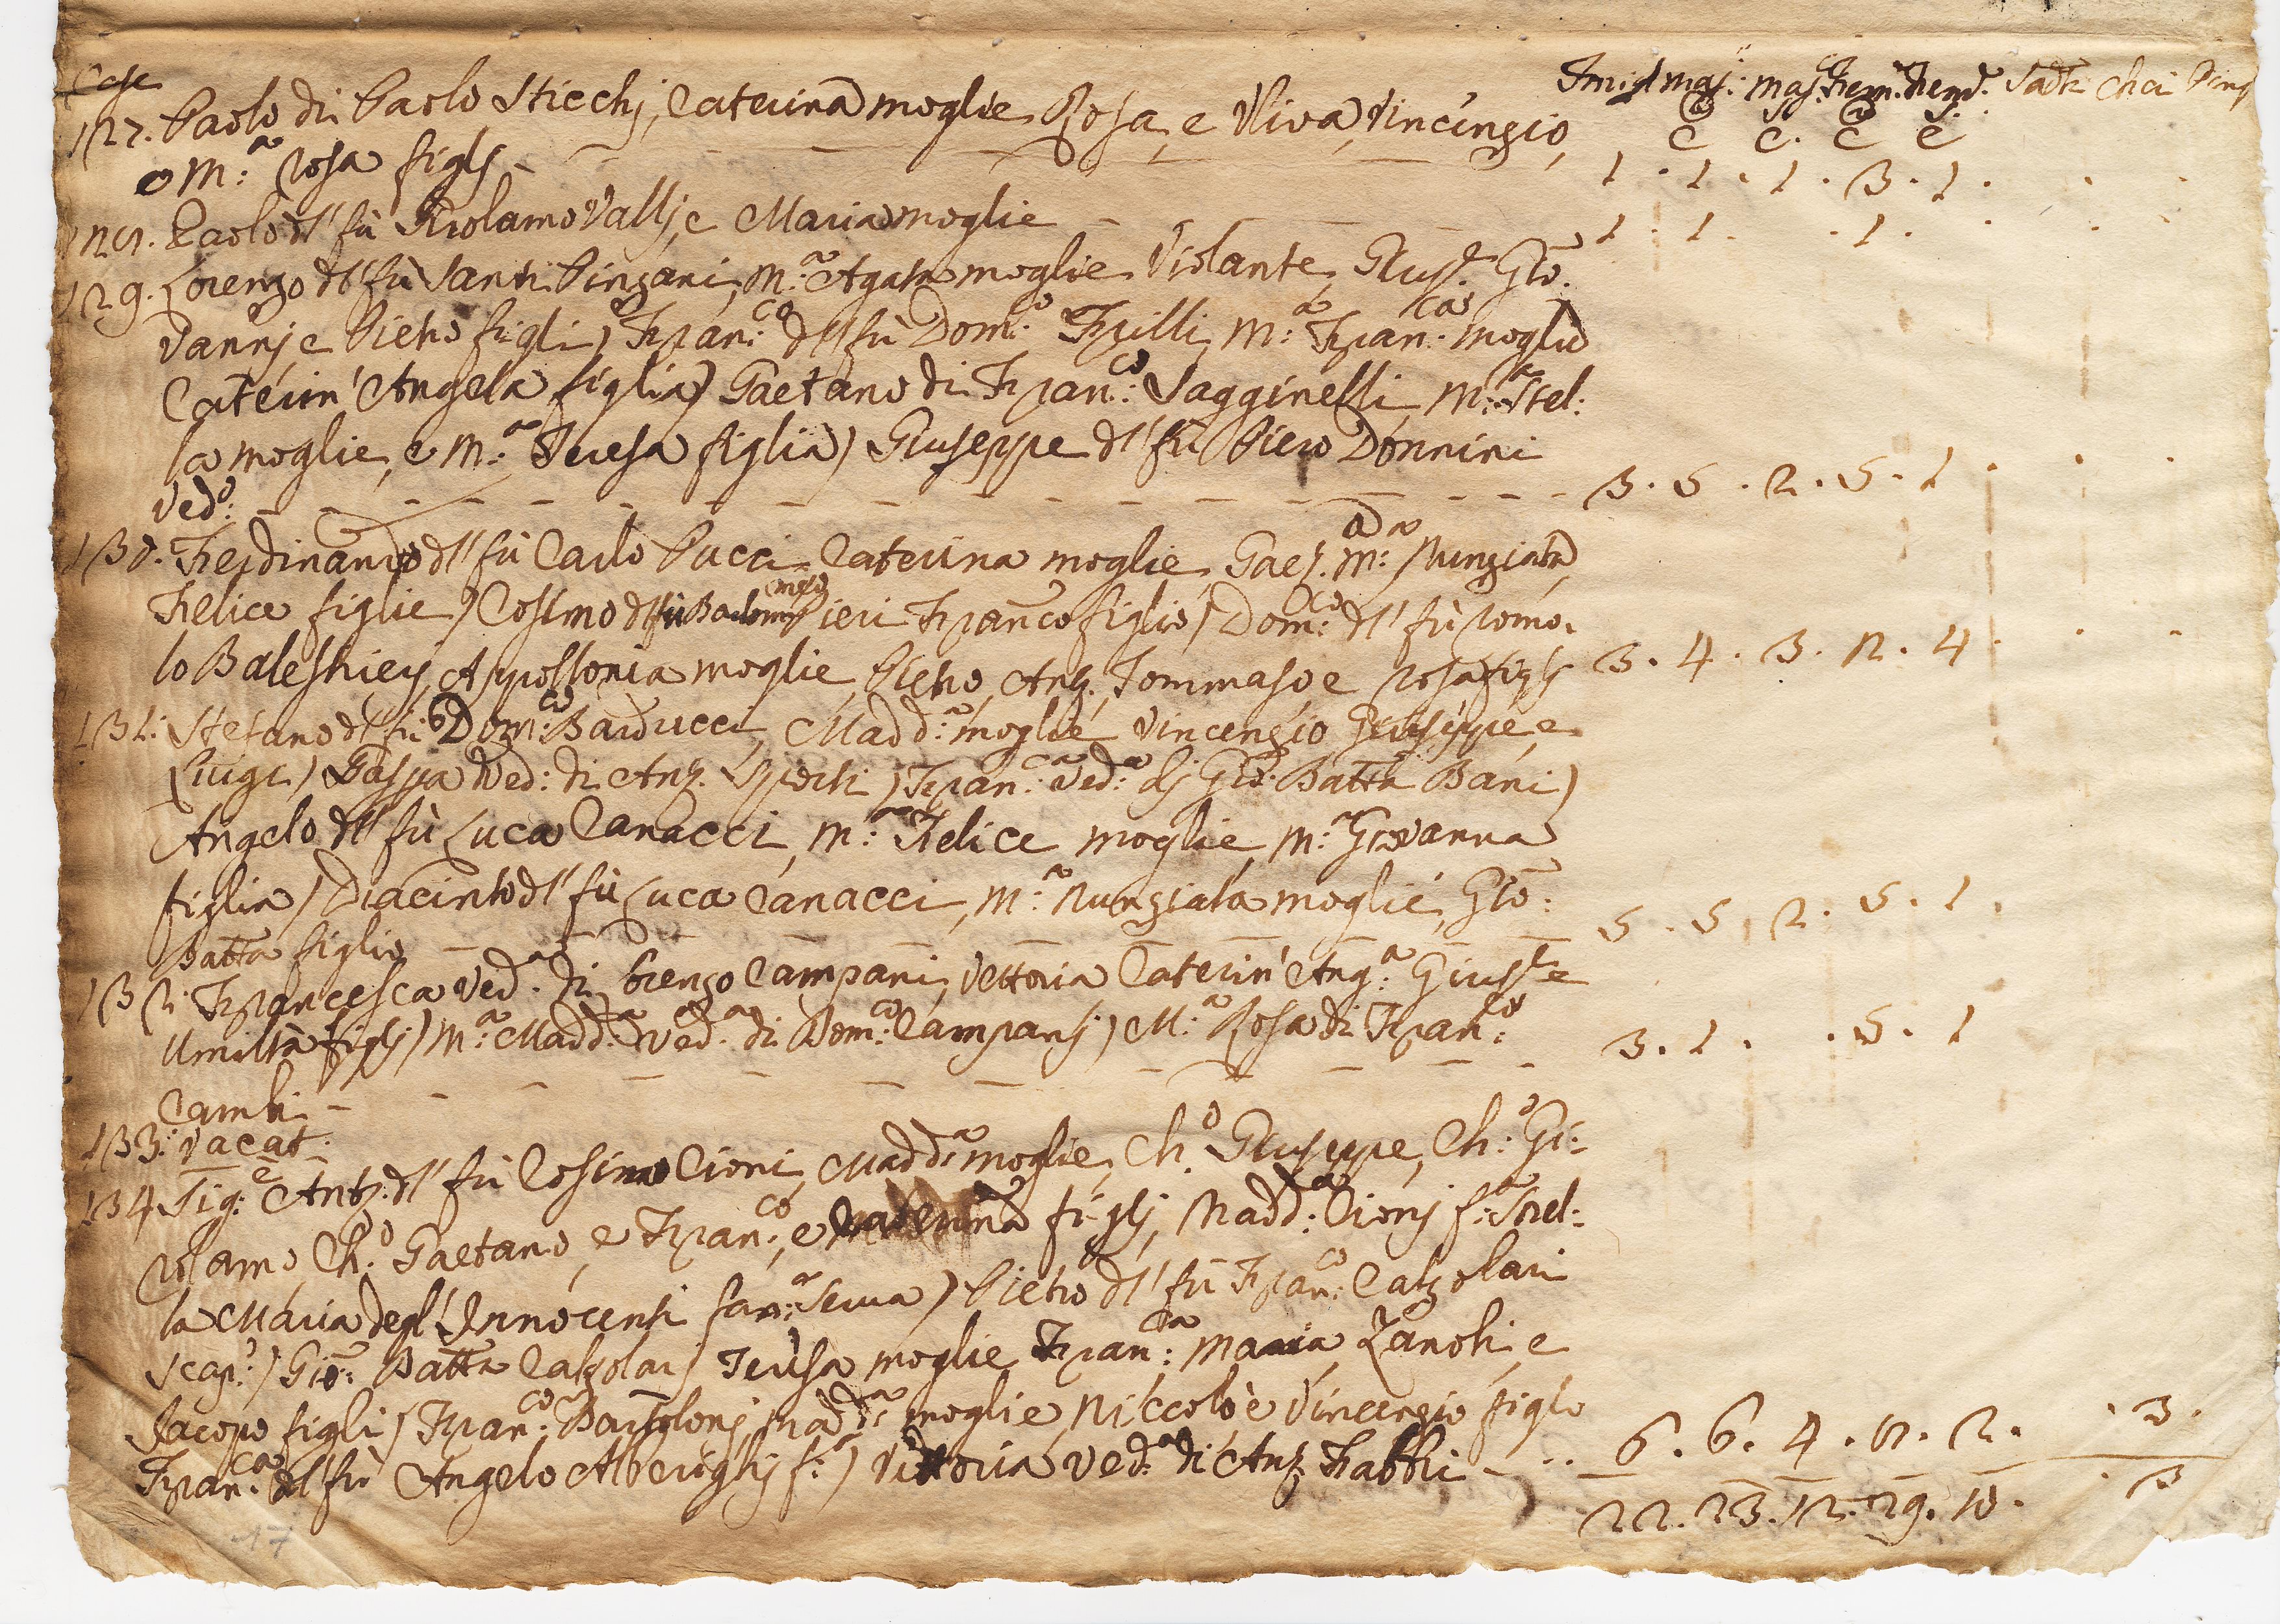 Case Fmigl mas: mas: Fem: Fem: Sacti Chci
C C. C C
127. Paolo di Paolo Sticchj, Caterina moglie Rosa, e Viva, Vincenzio,
e M:ª Rosa figlj - - - - 1 . 1 . 1 . 3 . 1 . . .
Paolo dl' fù Girolamo Vallj, e Maria moglie - - - 1 . 1 . . 1 . . .
129. Lorenzo dl' fù Santi Pinzani, M:ª Agata moglie Violante, Gius:e Gio:
vannj e Pietro figli) Fran:co dl' fù Dom:co Frilli, M:ª Fran:ca moglie
Caterin' Angela figlia) Gaetano di Fran:co Sagginelli, M:ª Stel:
la moglie, e M:ª Teresa figlia) Giuseppe dl' fù Piero Donnini
Ved:o - - - - - - 3 . 5 . 2 . 5 . 1 . . .
130. Ferdinando dl' fù Carlo Pucci Caterina moglie, Gae:a M:ª Nunziata,
Felice figlie) Cosimo dl' fù Bartolommeo Pieri Franco figlio) Dom:co dl' fù Romo:
lo Balestriej, Appollonia moglie, Pietro, Ant. Tommaso e Rosa figlj 3 . 4 . 3 . 12 . 4 . . .
131: Stefano dl' fù Dom:co Barducci, Madd:ª moglie Vincenzio Giuseppe, e
Luigi) Gaspa Ved: di Ant. Fran:ca Ved:ª dj Gio: Batta Bani)
Angelo dl' fù Luca Canacci, M:ª Felice moglie, M:ª Giovanna
figlia) Diacinto dl' fù Luca Canacci, M:ª Nunziata moglie, Gio:
Batta figlio - - - - 5 . 5 . 2 . 5 . 1 .
132: Francesca Ved:ª di Lorenzo Campani, Vettoria Caterin' Ang:ª Gius:e
Umiltà figlj) M:ª Madd:ª Ved:ª di Dom:co Campanj) M:ª Rosa di Fran:co
Cambi - - - - - - 3 . 1 . . 5 . 1
133: vacat:
134 Sig:e Ant: dl' fù Cosimo Cioni, Madd:ª moglie, Ch:o Giuseppe, Ch:o Gi:
rolamo, Ch:o Gaetano, e Fran:co, e Caterina figlj, Madd:ª Cionj f:ª Stel:
la Maria degl' Innocenti fan:ª Serva) Pietro dl' fù Fran:co Calzolari
scap:o) Gio: Batta Calzolarj Teresa moglie Fran:ca Maria, Zanobi, e
Jacopo figli) Fran:co Bartolonj Madd:ª moglie, Niccolò e Vincenzio figlo
Fran:ca dl' fù Angelo Alberighj f:ª) Vittoria Ved:ª di Ant. Fabbri - .. 6 . 6 . 4 . 12 . 2 . . 3 .
22 . 23 . 12 . 29 . 10 . . 3
17